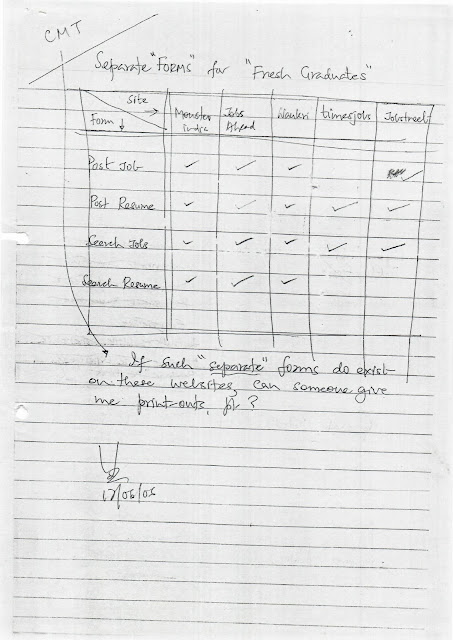 CMT
Separate "Forms" for "Fresh Graduates"
Site →
Form ↓
Monster India
Jobs Ahead
Naukri
timesjobs
Jobstreet
Post Job ✓ ✓ ✓ ✓
Post Resume ✓ ✓ ✓ ✓ ✓
Search Jobs ✓ ✓ ✓ ✓ ✓
Search Resume ✓ ✓ ✓
If such "separate" forms do exist
on these websites, can someone give
me print-outs, pl ?